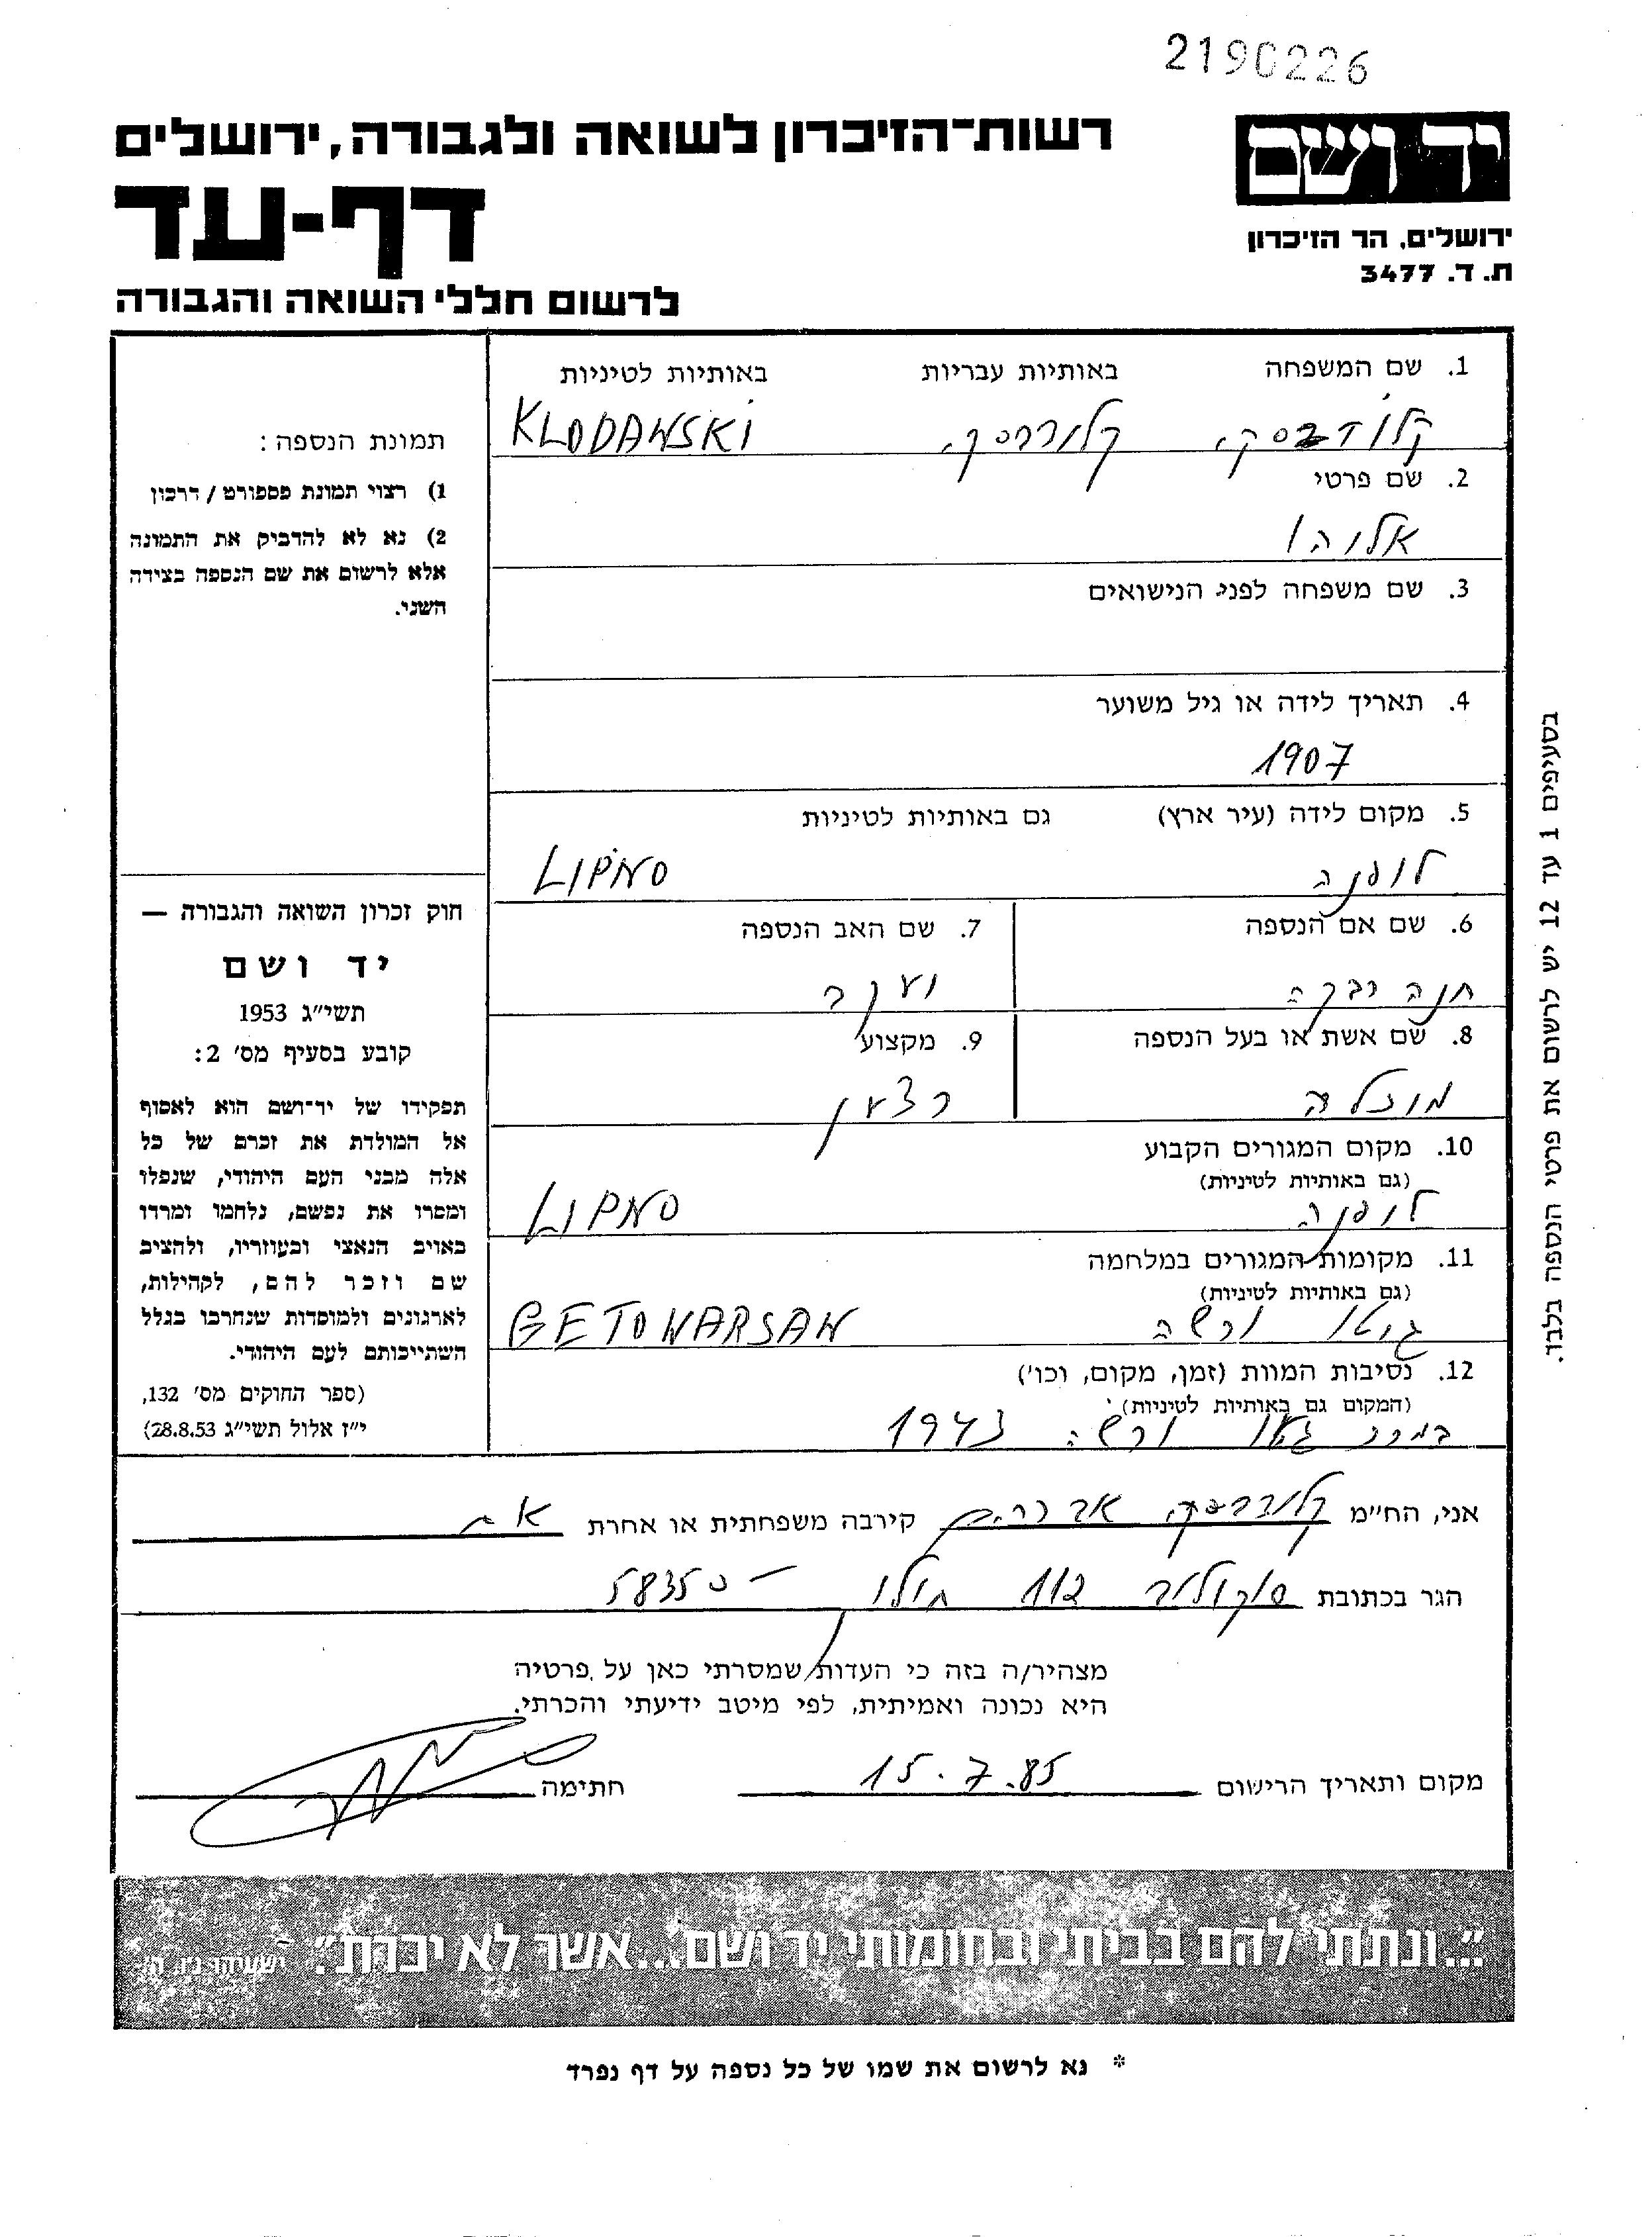 2190226
רשות-הזיכרון לשואה ולגבורה, ירושלים
יד ושם
דף-עד
ירושלים, הר הזיכרון
ת. ד. 3477
לרשום חללי השואה והגבורה
1. שם המשפחה באותיות עבריות באותיות לטיניות
קלודבסקי קלודבסקי KLODAWSKI
2. שם פרטי
אליהו
3. שם משפחה לפני הנישואים
4. תאריך לידה או גיל משוער
1907
5. מקום לידה (עיר ארץ) גם באותיות לטיניות
ליפנה LIPNO
6. שם אם הנספה 7. שם האב הנספה
חנה רבקה יעקב
8. שם אשת או בעל הנספה 9. מקצוע
רצען
10. מקום המגורים הקבוע
(גם באותיות לטיניות)
ליפנה LIPNO
11. מקומות המגורים במלחמה
(גם באותיות לטיניות)
גיטו ורשה GETO WARSAW
12. נסיבות המוות (זמן, מקום, וכו')
(המקום גם באותיות לטיניות)
במרד גטו ורשה 1943
תמונת הנספה:
1) רצוי תמונת פספורט / דרכון
2) נא לא להדביק את התמונה
אלא לרשום את שם הנספה בצידה
השני.
חוק זכרון השואה והגבורה —
יד ושם
תשי״ג 1953
קובע בסעיף מס׳ 2:
תפקידו של יד-ושם הוא לאסוף
אל המולדת את זכרם של כל
אלה מבני העם היהודי, שנפלו
ומסרו את נפשם, נלחמו ומרדו
באויב הנאצי ובעוזריו, ולהציב
שם וזכר להם, לקהילות,
לארגונים ולמוסדות שנחרבו בגלל
השתייכותם לעם היהודי.
(ספר החוקים מס׳ 132,
י״ז אלול תשי״ג 28.8.53)
בסעיפים 1 עד 12 יש לרשום את פרטי הנספה בלבד.
אני, הח״מ קלודבסקי אברהם קירבה משפחתית או אחרת אח
הגר בכתובת סוקולוב 112 חולון 58350
מצהיר/ה בזה כי העדות שמסרתי כאן על פרטיה
היא נכונה ואמיתית, לפי מיטב ידיעתי והכרתי.
מקום ותאריך הרישום 15.7.85 חתימה
״...ונתתי להם בביתי ובחומותי יד ושם...אשר לא יכרת״. ישעיהו נו, ה
* נא לרשום את שמו של כל נספה על דף נפרד